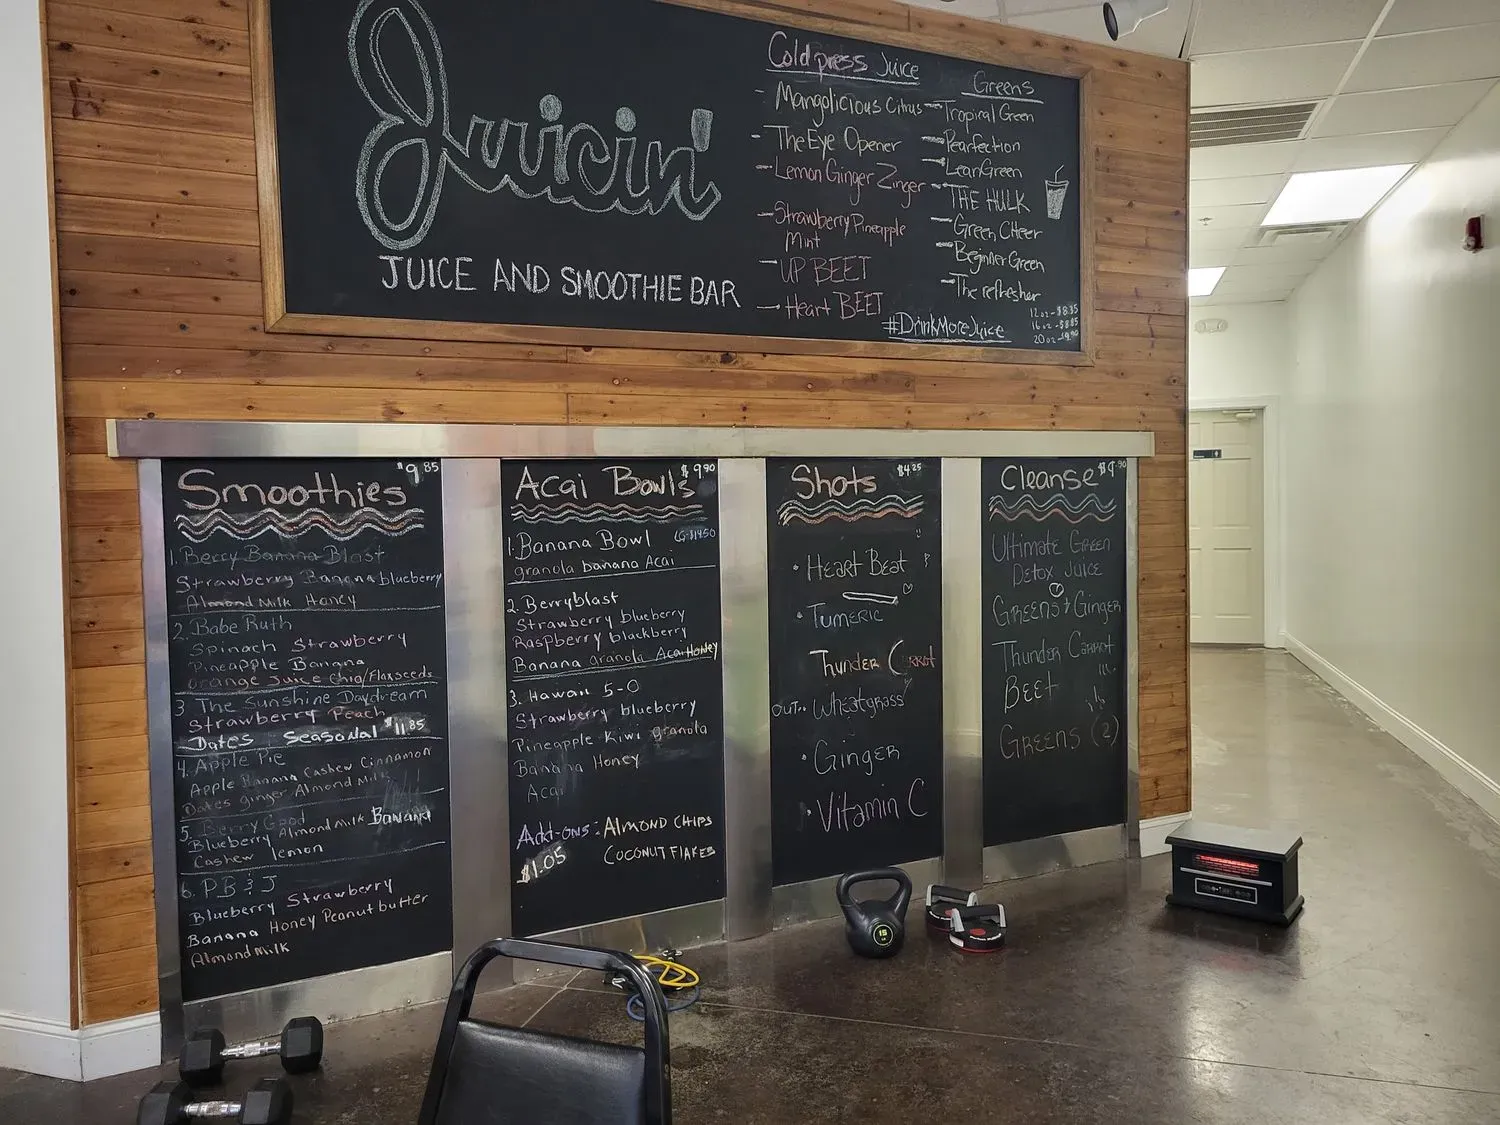 Juicin'
JUICE AND SMOOTHIE BAR
Coldpress Juice
- Mangolicious Citrus
- The Eye Opener
- Lemon Ginger Zinger
- Strawberry Pineapple
Mint
- UP BEET
- Heart BEET
Greens
- Tropical Green
- Pearfection
- Lean Green
- THE HULK
- Green Cheer
- Beginner Green
- The refresher
#DrinkMoreJuice
12oz-$8.35
16oz-$8.85
20oz-$9.90
Smoothies $9.85
1. Berry Banana Blast
Strawberry Banana blueberry
Almond Milk Honey
2. Babe Ruth
Spinach Strawberry
Pineapple Banana
orange Juice Chia/Flaxseeds
3 The Sunshine Daydream
Strawberry Peach
Dates Seasonal $11.85
4. Apple Pie
Apple Banana Cashew Cinnamon
Dates ginger Almond Milk
5. Berry Good
Blueberry Almond Milk Banana
Cashew lemon
6. PB & J
Blueberry Strawberry
Banana Honey Peanut butter
Almond Milk
Acai Bowls $9.90
1. Banana Bowl
granola banana Acai
2. Berryblast
Strawberry blueberry
Raspberry blackberry
Banana granola Acai Honey
3. Hawaii 5-0
Strawberry blueberry
Pineapple Kiwi granola
Banana Honey
Acai
Add-ons: ALMOND CHIPS
$1.05 COCONUT FLAKES
Shots $4.25
• Heart Beat
• Tumeric
Thunder Carrot
OUT.. Wheatgrass
• Ginger
• Vitamin C
Cleanse $9.90
Ultimate Green
Detox Juice
Greens & Ginger
Thunder Carrot
Beet
Greens (2)
15